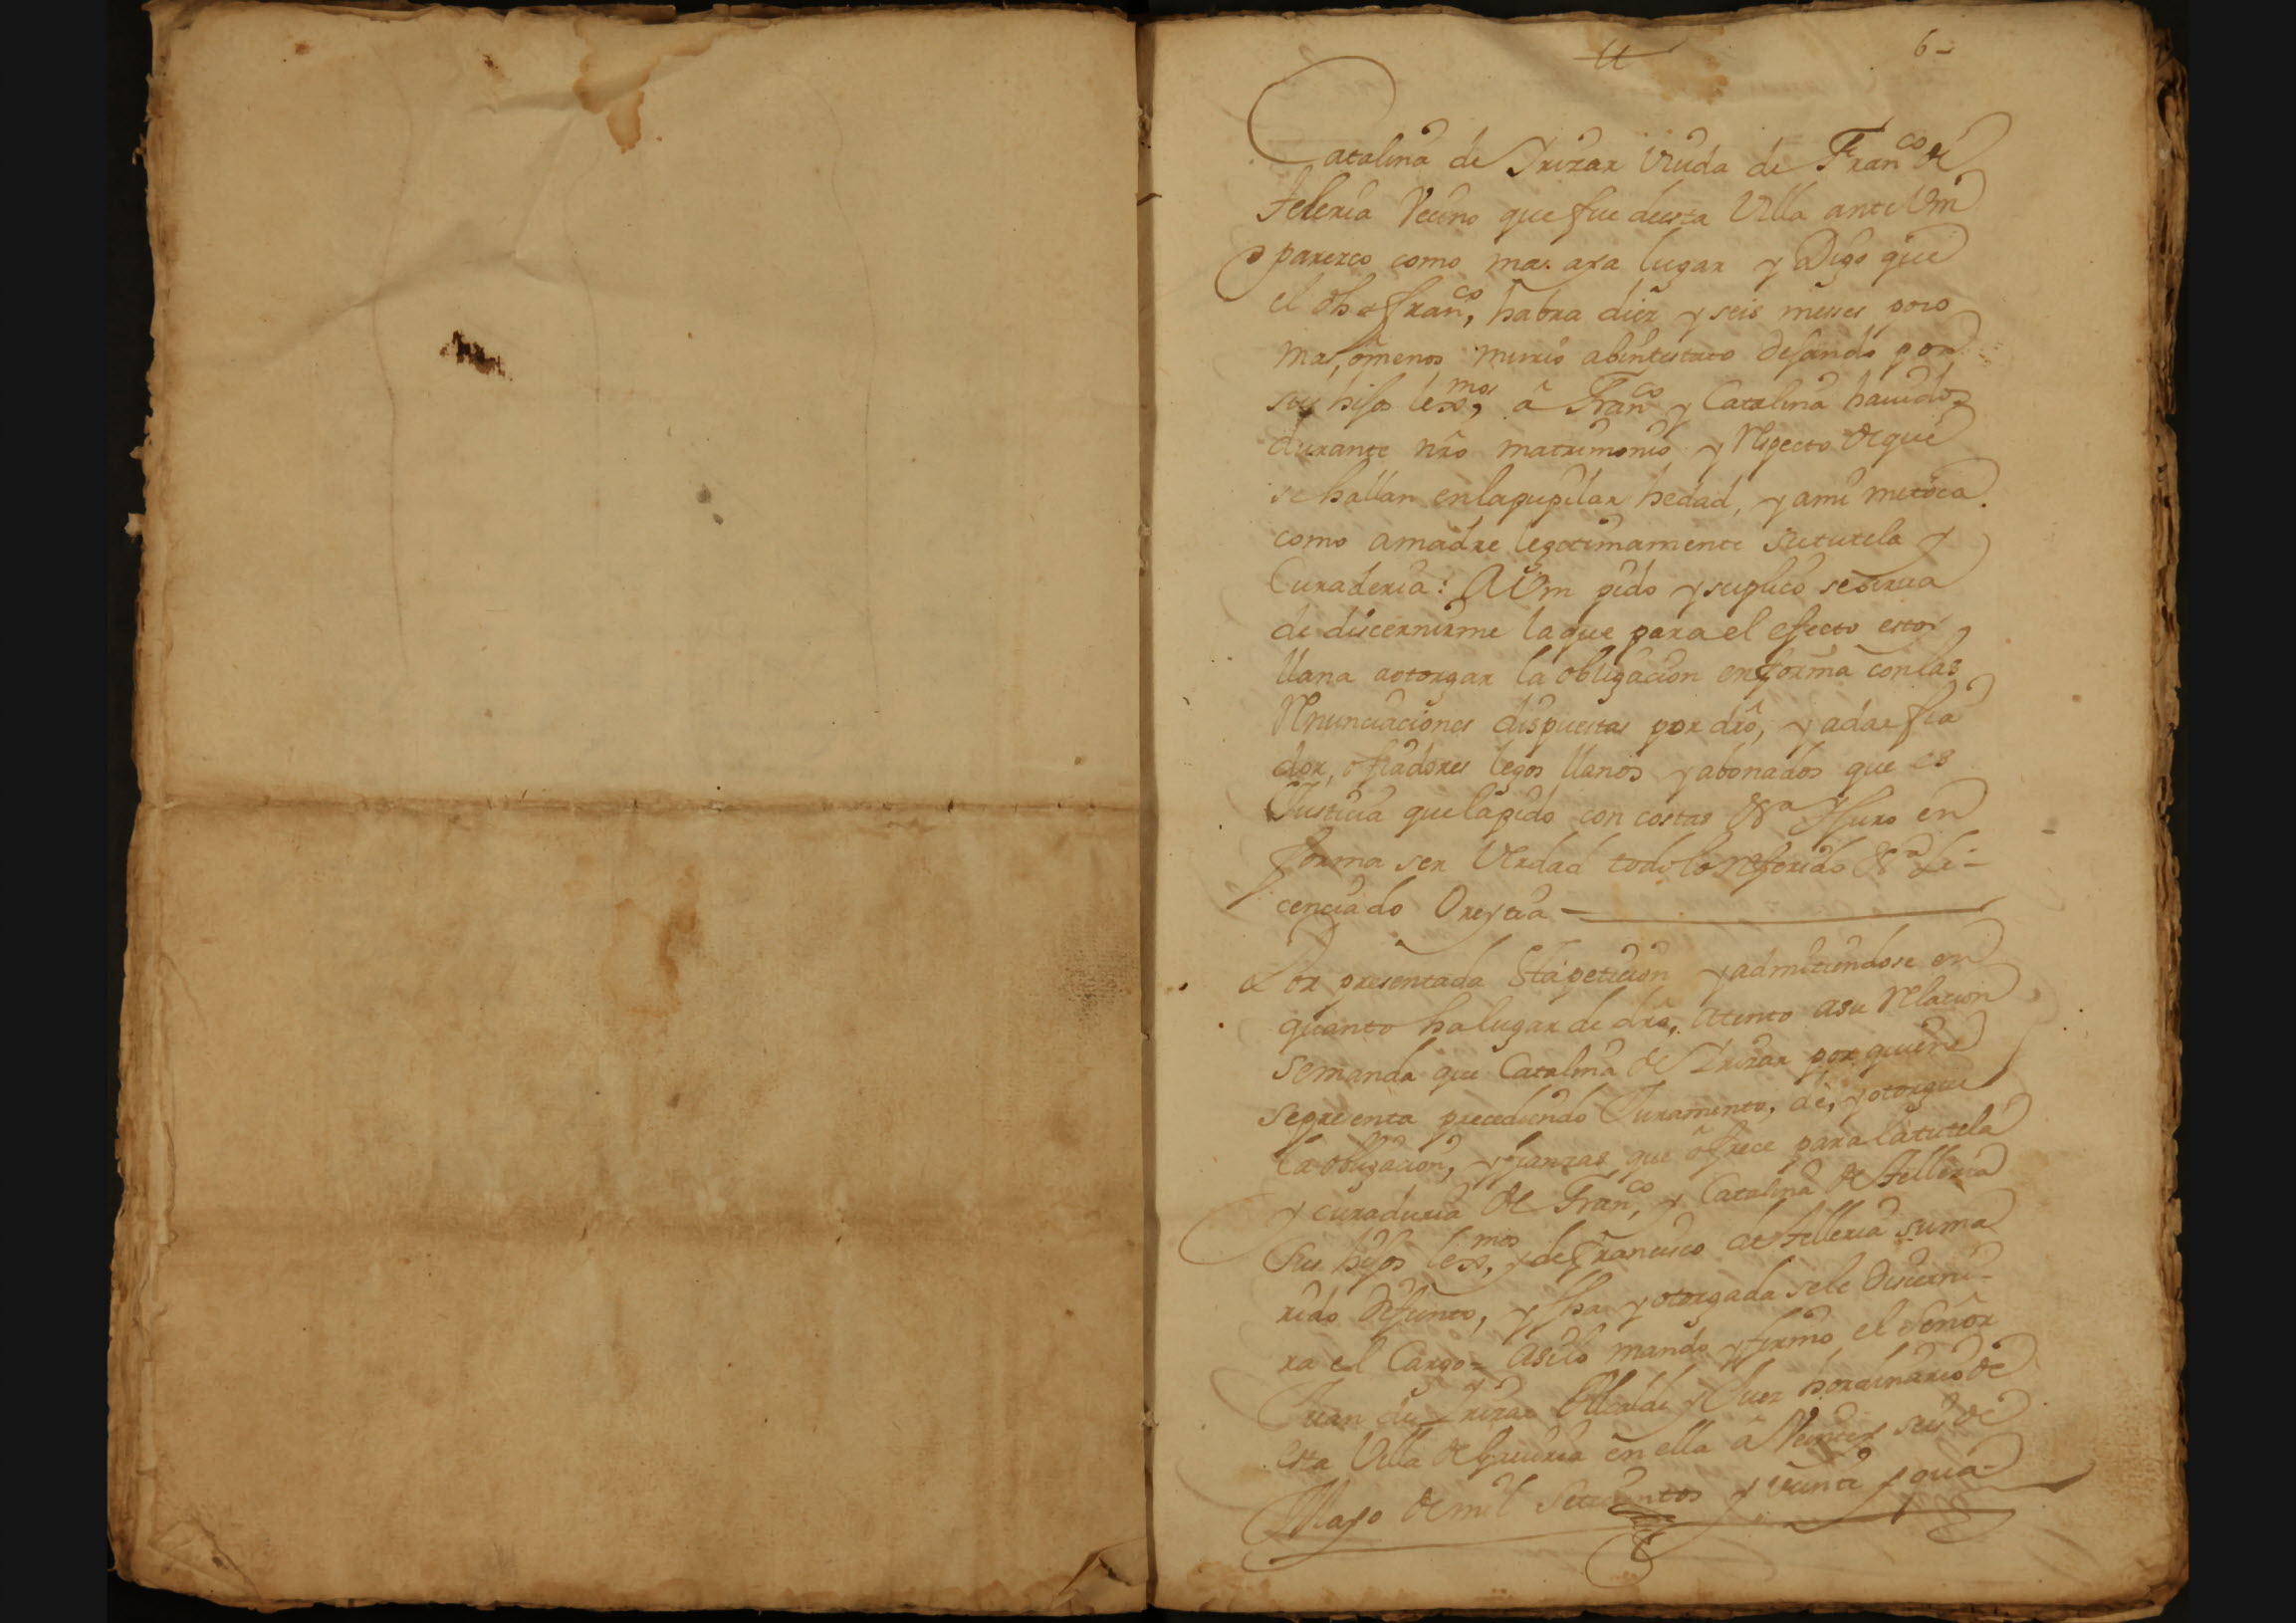 6-
Catalina de Irizar Viuda de Fran.co de
Telleria Vecino que fue desta Villa ante Vm
parezco como mas aya lugar y Digo que
el dho Fran.co, habra diez y seis meses poco
mas, ò menos, murio abintestato dejando por
sus hijos lexmos, â Fran.co y Catalina havidos
durante nro matrimonio y Respecto de que
se hallan en la pupilar hedad, y ami me toca
como a madre legitimamente su tutela y
Curaderia: A Vm pido y suplico se sirva
de discernirme la que para el efecto estoy
llana a otorgar la obligacion en forma con las
Renunciaciones dispuestas por dro, y a dar fia
dor, o fiadores legos llanos y abonados que es
Justicia que la pido con costas &a y Juro en
forma ser Verdad todo lo referido &a Li-
cenciado Oreytia
Por presentada Esta peticion y admitiendose en
quanto ha lugar de dro, atento a su Relacion
se manda que Catalina de Irizar por quien
se presenta precediendo Juramento, dé, y otorgue
la obligacion, y fianzas que ofrece para la tutela
y curaduria de Fran.co, y Catalina de Telleria
sus hijos lexmos, y de Francisco de Telleria su ma
rido difunto, y fha y otorgada se le Discerni-
ra el Cargo = Asi lo mando y firmo el Señor
Juan de Irizar Alcalde y Juez hordinario de
esta Villa de Gaviria en ella â Veinte y seis de
Mayo de mil Setecientos y veinte y qua-